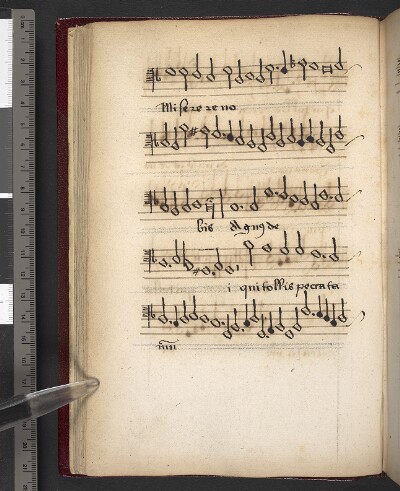 Miserere no
bis Agnus de
i qui tollis peccata
mu